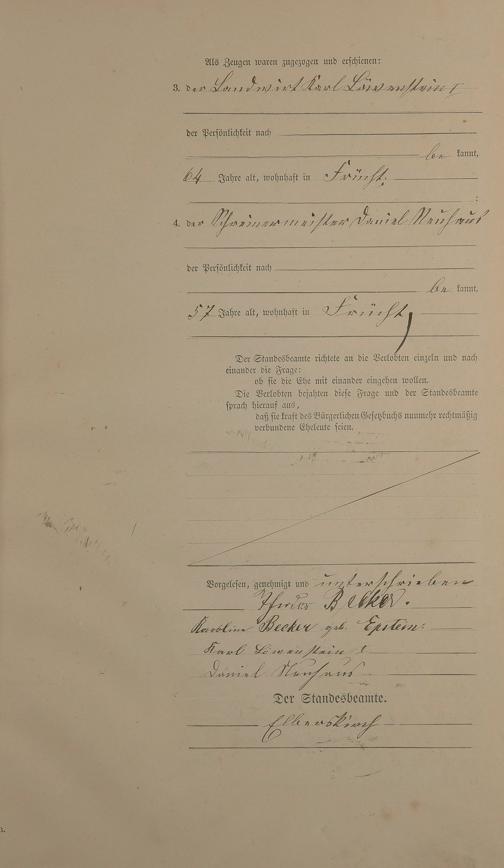 Als Zeugen waren zugezogen und erschienen:
3. der Landwirt Karl Löwenstein,
der Persönlichkeit nach
be kannt,
64 Jahre alt, wohnhaft in Frücht;
4. der Schreinermeister Daniel Neuhaus
der Persönlichkeit nach
be kannt,
57 Jahre alt, wohnhaft in Frücht,
Der Standesbeamte richtete an die Verlobten einzeln und nach
einander die Frage:
ob sie die Ehe mit einander eingehen wollen.
Die Verlobten bejahten diese Frage und der Standesbeamte
sprach hierauf aus,
daß sie kraft des Bürgerlichen Gesetzbuchs nunmehr rechtmäßig
verbundene Eheleute seien.
Vorgelesen, genehmigt und unterschrieben
Becker.
Karoline Becker geb. Epstein.
Karl Löwenstein
Daniel Neuhaus
Der Standesbeamte.
Elberskirch